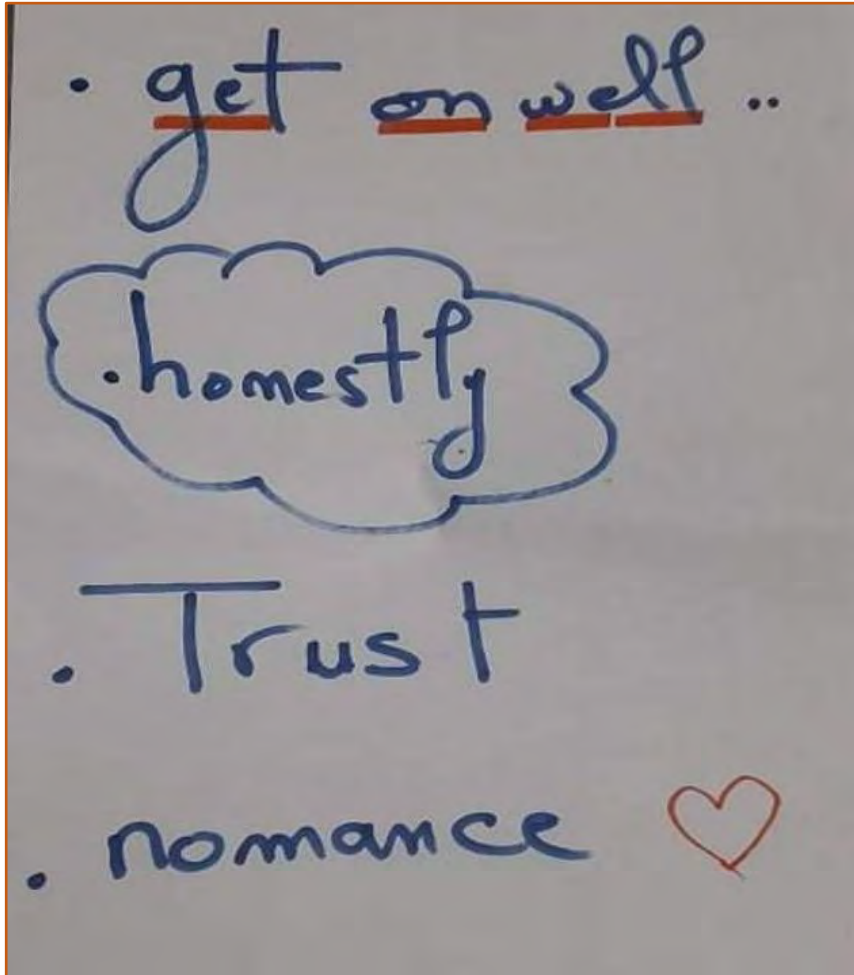 . get on well ..
. homestly
. Trust
. nomance